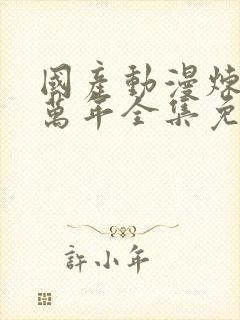 國產動漫煉
萬年全集免
許小年